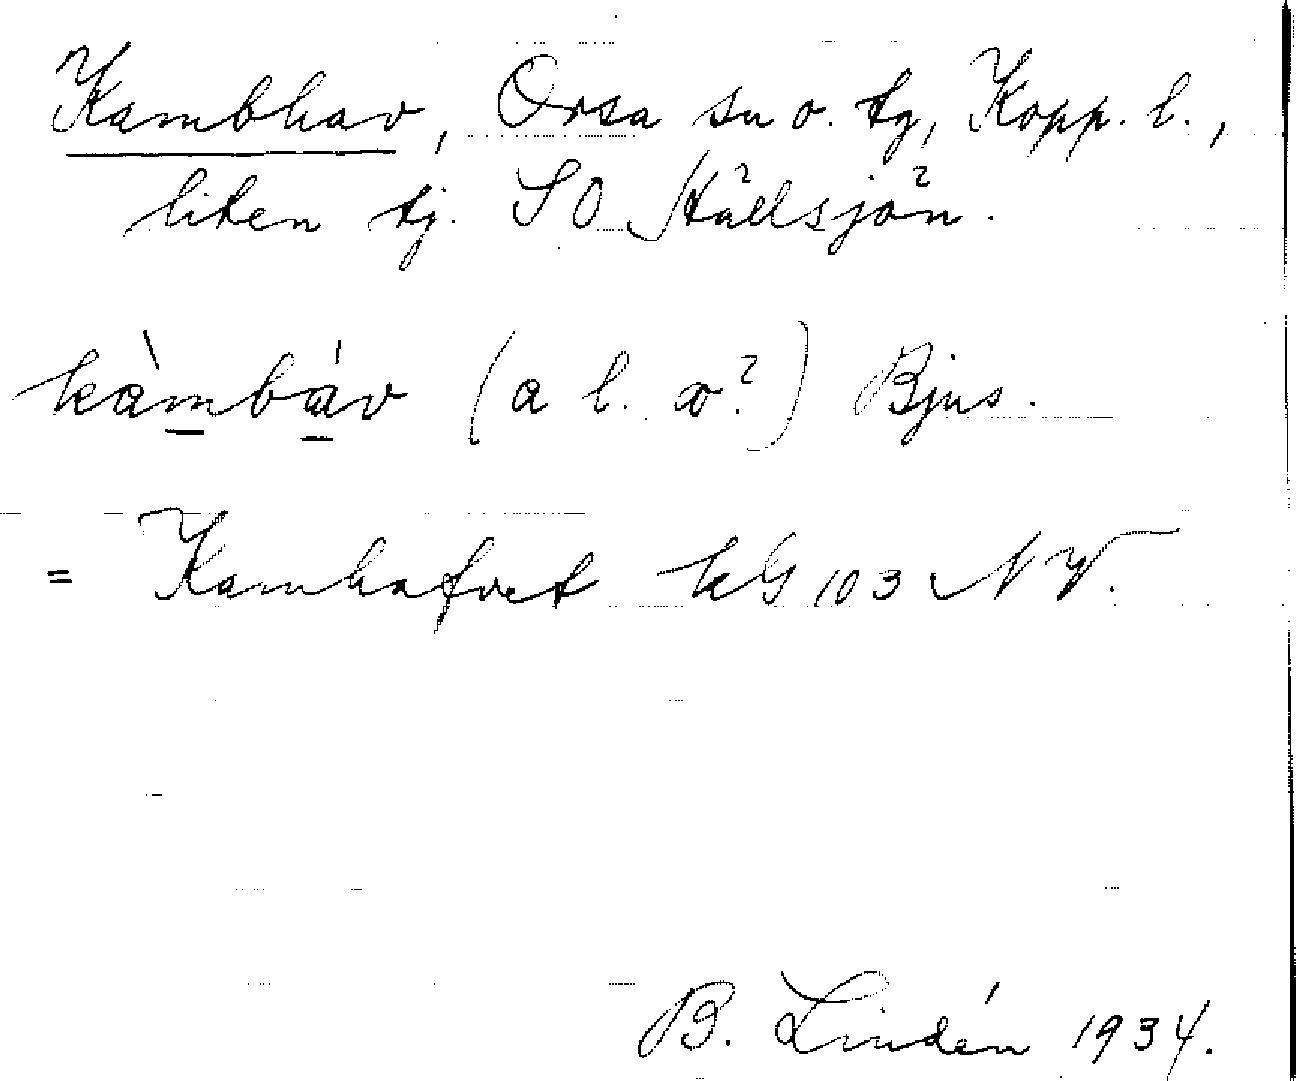 Kambhav, Orsa sn o. tg, Kopp. l.,
liten tj. SO Hällsjön.
kàmbáv (a l. α?) Bjus.
= Kamhafvet kG 103 NV.
B. Lindén 1934.